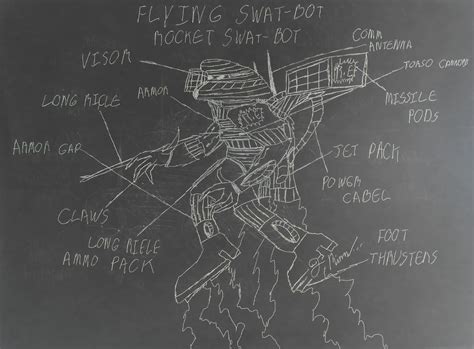 FLYING SWAT-BOT
ROCKET SWAT-BOT
VISOR
COMM
ANTENNA
TORSO CANNONS
LONG RICLE
ARMOR
MISSILE
PODS
ARMOR GAP
JET PACK
CLAWS
POWER
CABEL
LONG RIELE
AMMO PACK
FOOT
THRUSTERS